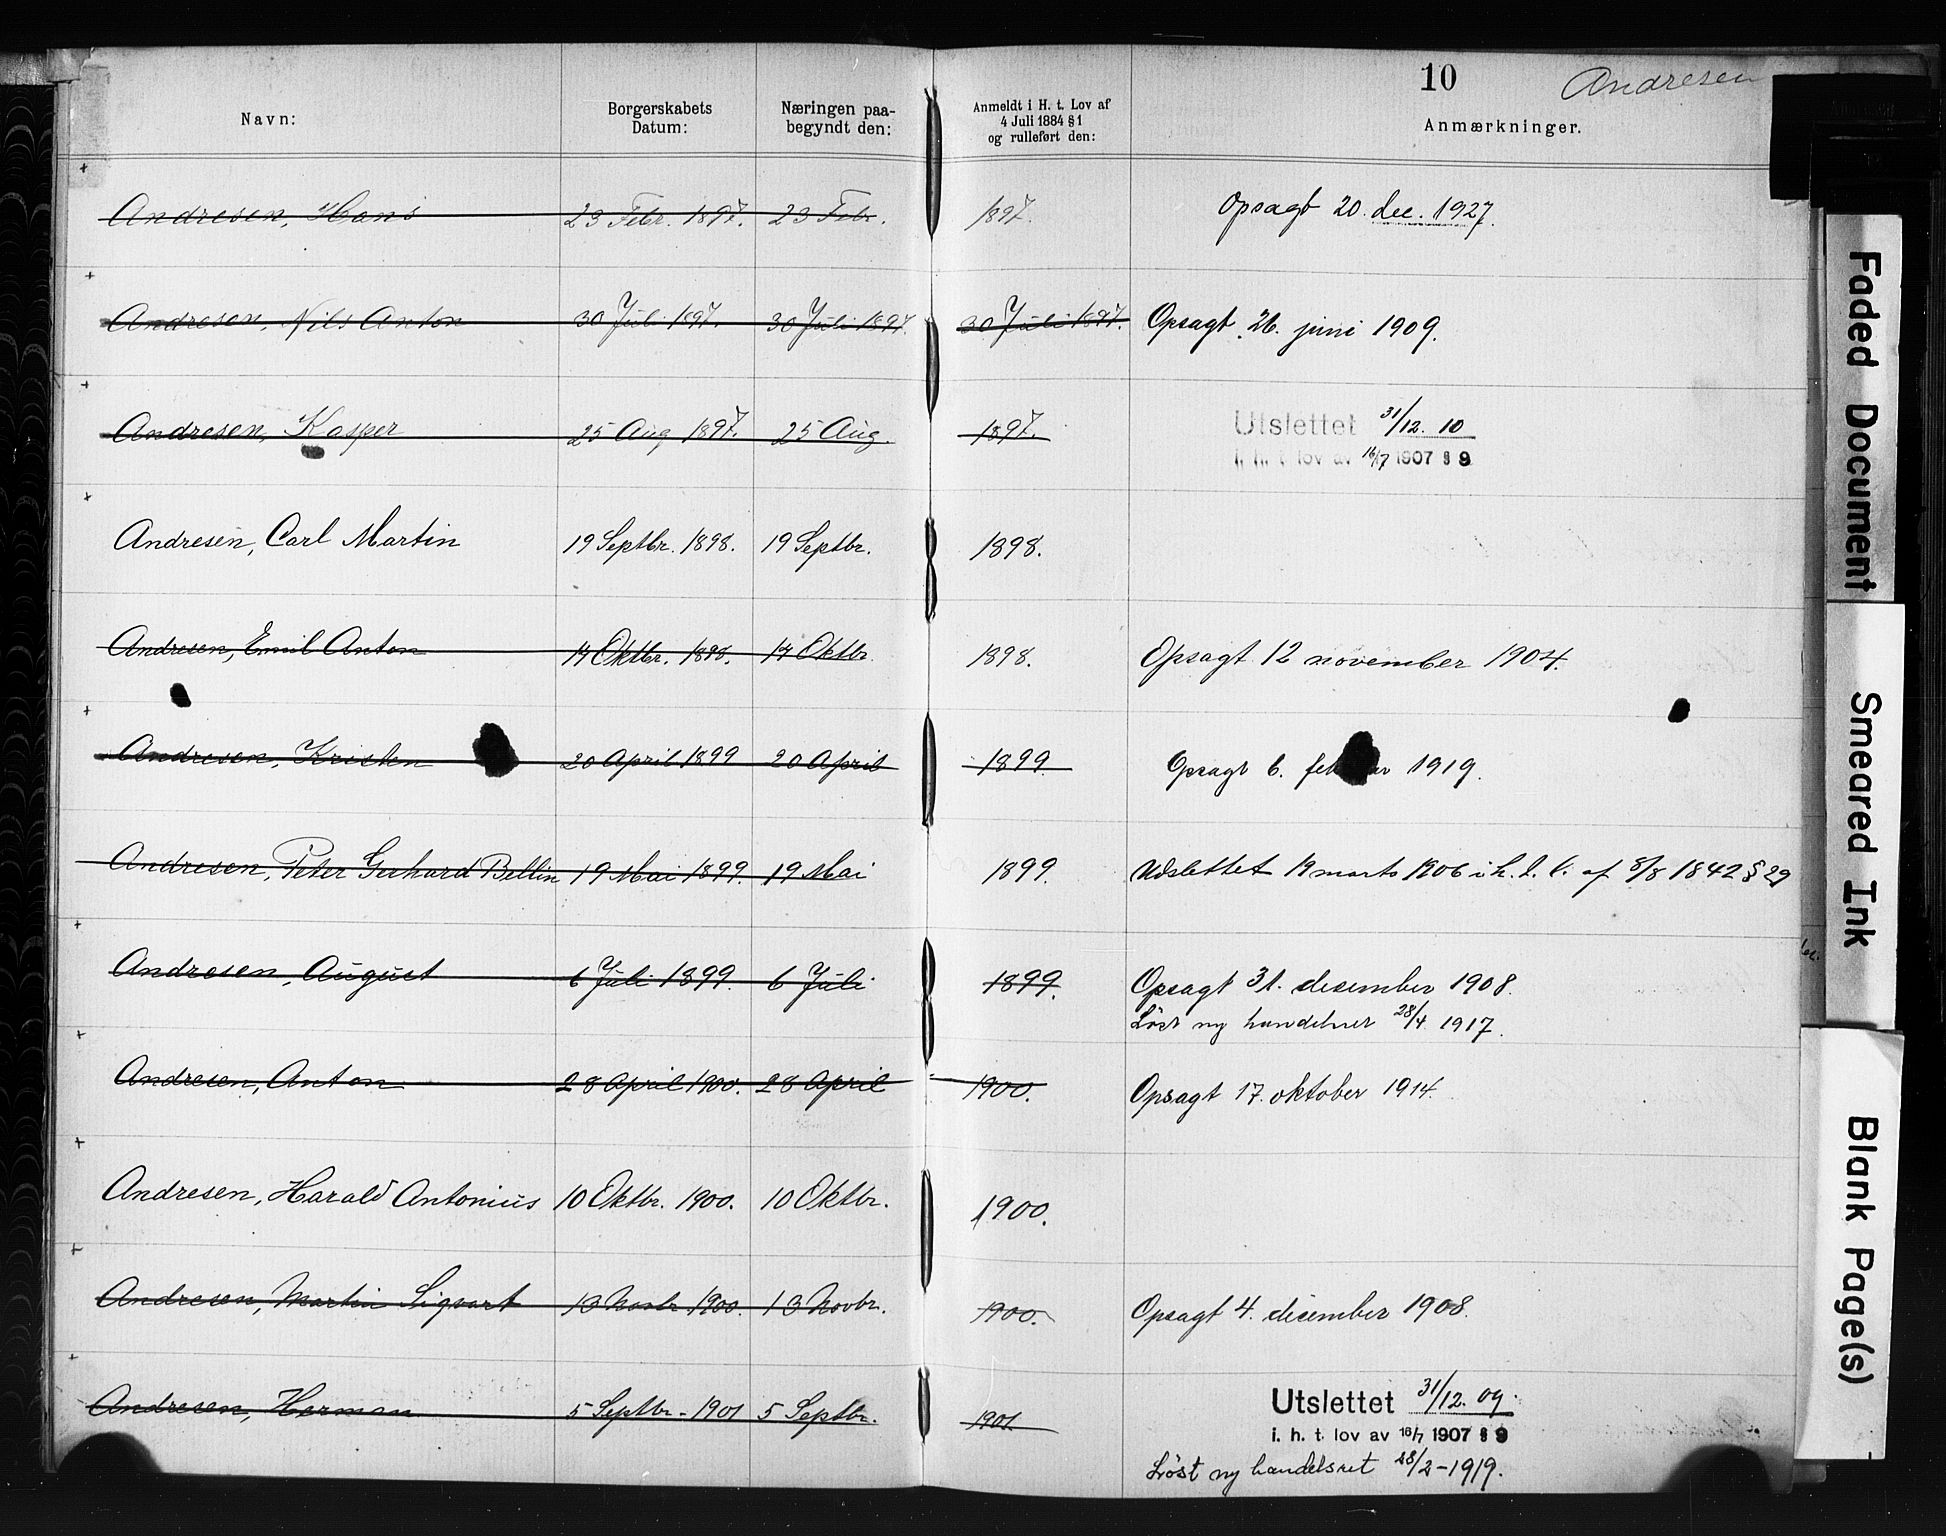 10 Andresen
Navn: Borgerskabets Datum: Næringen paa-begyndt den: Anmeldt i H. t. Lov af 4 Juli 1884 § 1 og rulleført den: Anmærkninger.
Andresen, Hans 23 Febr. 1897. 23 Febr. 1897. Opsagt 20. dec. 1927.
Andresen, Nils Anton 30 Juli 1897. 30 Juli 1897. 30 Juli 1897. Opsagt 26. juni 1909.
Andresen, Kasper 25 Aug 1897. 25 Aug. 1897. Utslettet 31/12. 10
i. h. t. lov av 16/7 1907 § 9
Andresen, Carl Martin 19 Septbr. 1898. 19 Septbr. 1898.
Andresen, Emil Anton 14 Oktbr. 1898. 14 Oktbr. 1898. Opsagt 12 november 1904.
Andresen, Kristen 20 April 1899 20 April 1899. Opsagt 6. februar 1919.
Andresen, Peter Gerhard Bellin 19 Mai 1899. 19 Mai 1899. Udslettet 19 marts 1906 i h. t. l. af 8/8 1842 § 29
Andresen, August 6 Juli 1899. 6 Juli 1899. Opsagt 31. desember 1908.
Löst ny handelsret 28/4. 1917.
Andresen, Anton 28 April 1900. 28 April 1900. Opsagt 17. oktober 1914.
Andresen, Harald Antonius 10 Oktbr. 1900. 10 Oktbr. 1900.
Andresen, Martin Sigvart 13 Novbr. 1900. 13 Novbr. 1900. Opsagt 4. desember 1908.
Andresen, Herman 5 Septbr. 1901 5 Septbr. 1901. Utslettet 31/12. 09.
i. h. t. lov av 16/7 1907 § 9
Löst ny handelsret 28/2-1919.
Faded Document
Smeared Ink
Blank Page(s)